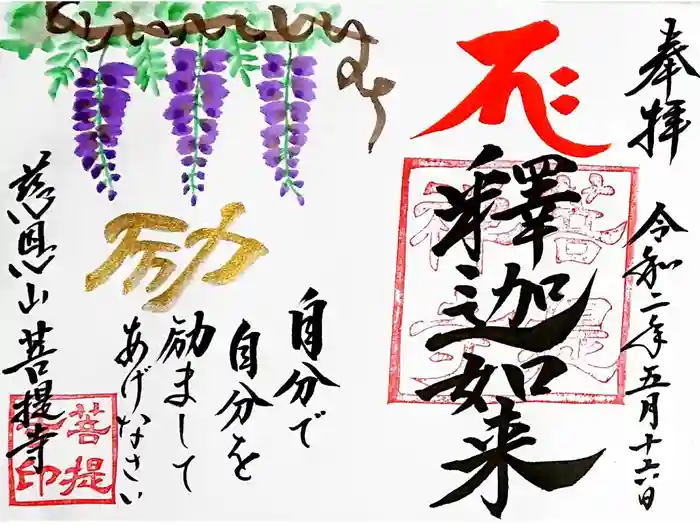 奉拝
令和二年五月十六日
釋迦如来
励
自分で
自分を
励まして
あげなさい
慈恩山 菩提寺
菩提
印